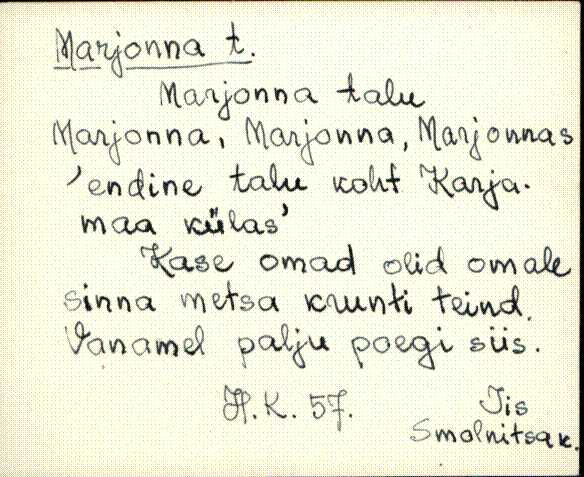 Marjonna t.
Marjonna talu
Marjonna, Marjonna, Marjonnas
'endine talu koht Karja-
maa külas'
Kase omad olid omale
sinna metsa krunti teind.
Vanamel palju poegi siis.
H.K. 57. Iis
Smolnitsa k.